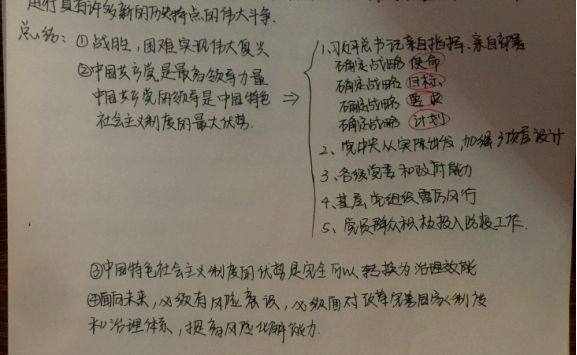 进行具有许多新的历史特点的伟大斗争.
总结: ①战胜,困难实现伟大复兴
②中国共产党是最高领导力量
中国共产党的领导是中国特色
社会主义制度的最大优势. ⇒
1.习近平总书记亲自指挥、亲自部署
确定战略 使命
确定战略 目标、
确定战略 要求
确定战略 计划
2、党中央从实际出发,加强了顶层设计
3、各级党委和政府能力
4、基层党组织雷厉风行
5、党员群众积极投入防疫工作.
③中国特色社会主义制度的优势是完全可以转换为治理效能
④面向未来,必须有风险意识,必须面对改革完善国家制度
和治理体系,提高风险化解能力.